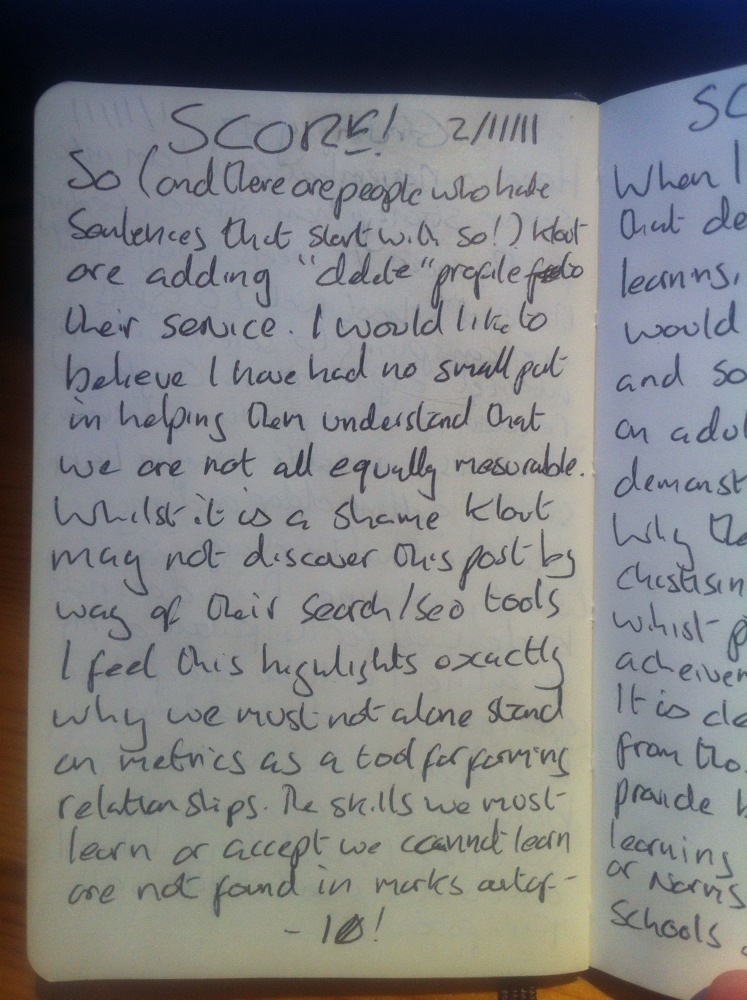 SCORE! 2/11/11
So (and there are people who hate
Sentences that start with so!) Klout
are adding "delete" profile to
their service. I would like to
believe I have had no small part
in helping them understand that
we are not all equally mesurable.
Whilst it is a shame Klout
may not discover this post by
way of their search/seo tools
I feel this highlights exactly
why we must not alone stand
on metrics as a tool for forming
relationships. The skills we must
learn or accept we cannot learn
are not found in marks out of -
- 10!
SC
When I
that de
learning,
would
and so
an adul
demonst
Why the
chastisin
whilst p
acheivem
It is cle
from tho
provide
learning
or Norris
Schools